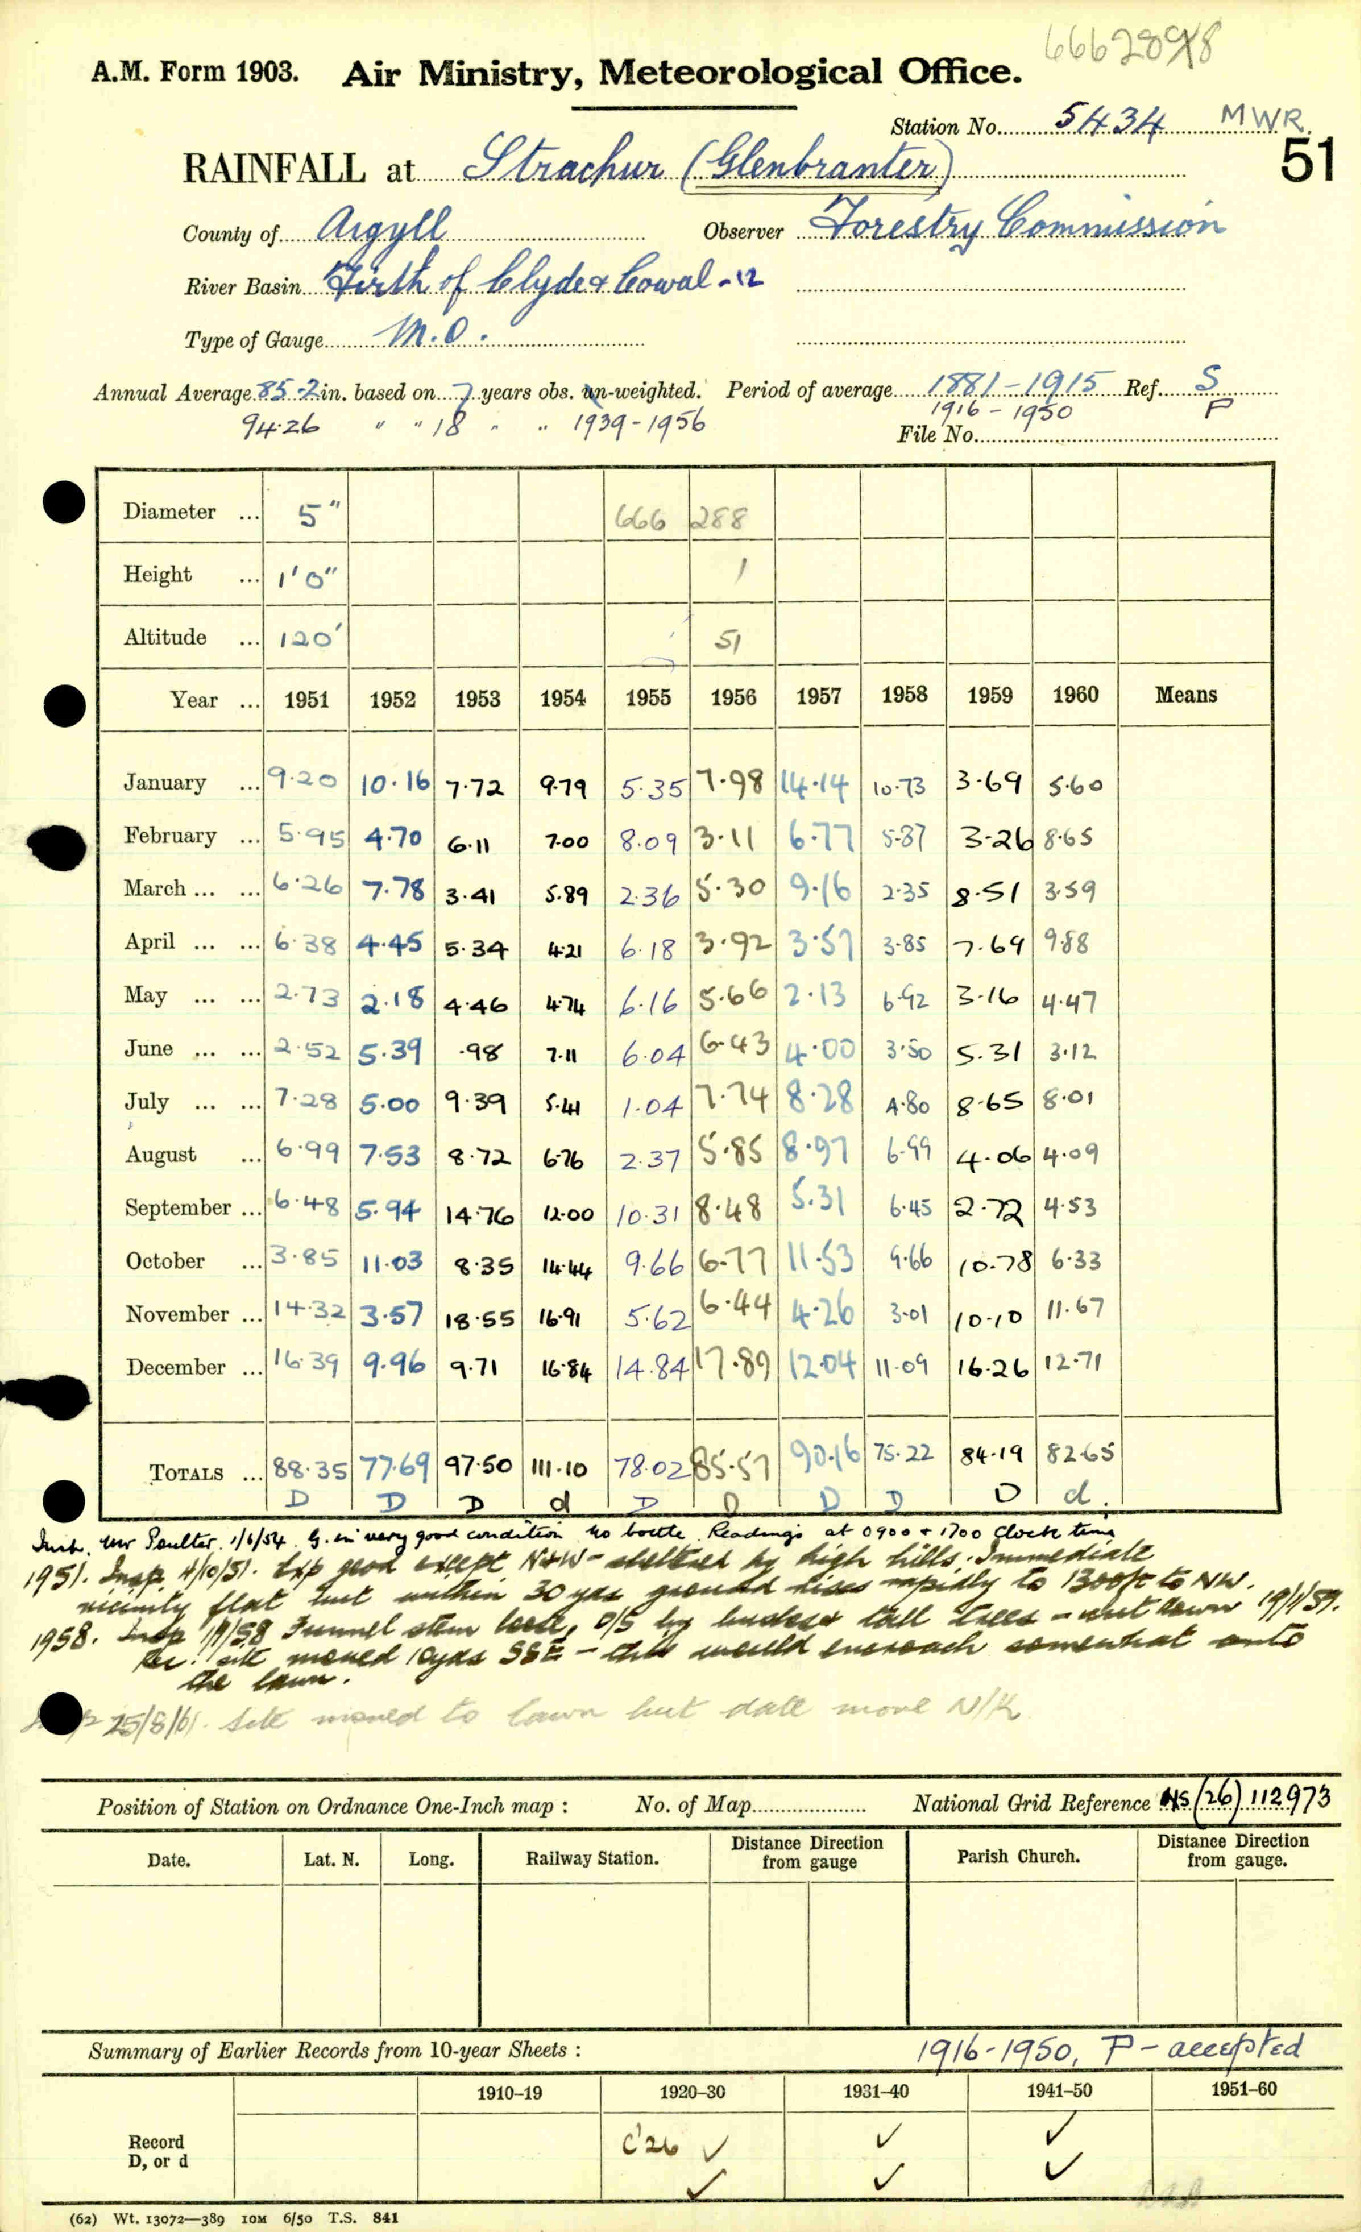 6662898
A.M. Form 1903. Air Ministry, Meteorological Office.
Station No. 5434 MWR.
51
RAINFALL at Strachur (Glenbranter)
County of Argyll Observer Forestry Commission
River Basin Firth of Clyde & Cowal - 12
Type of Gauge M.O.
Annual Average 85.2 in. based on 7 years obs. un-weighted. Period of average 1881-1915 Ref. S
94.26 " " 18 " " 1939-1956 1916-1950 P
File No.
Diameter ... 5" 666 288
Height ... 1'0" 1
Altitude ... 120' 51
Year ... 1951 1952 1953 1954 1955 1956 1957 1958 1959 1960 Means
January ... 9.20 10.16 7.72 9.79 5.35 7.98 14.14 10.73 3.69 5.60
February ... 5.95 4.70 6.11 7.00 8.09 3.11 6.77 5.87 3.26 8.65
March ... ... 6.26 7.78 3.41 5.89 2.36 5.30 9.16 2.35 8.51 3.59
April ... ... 6.38 4.45 5.34 4.21 6.18 3.92 3.57 3.85 7.69 9.88
May ... ... 2.73 2.18 4.46 4.74 6.16 5.66 2.13 6.92 3.16 4.47
June ... ... 2.52 5.39 .98 7.11 6.04 6.43 4.00 3.50 5.31 3.12
July ... ... 7.28 5.00 9.39 5.41 1.04 7.74 8.28 4.80 8.65 8.01
August ... 6.99 7.53 8.72 6.76 2.37 5.85 8.97 6.99 4.06 4.09
September ... 6.48 5.94 14.76 12.00 10.31 8.48 5.31 6.45 2.72 4.53
October ... 3.85 11.03 8.35 14.44 9.66 6.77 11.53 9.66 10.78 6.33
November ... 14.32 3.57 18.55 16.91 5.62 6.44 4.26 3.01 10.10 11.67
December ... 16.39 9.96 9.71 16.84 14.84 17.89 12.04 11.09 16.26 12.71
TOTALS ... 88.35 77.69 97.50 111.10 78.02 85.57 90.16 75.22 84.19 82.65
D D D d D D D D D d.
Insp. Mr Poulter. 1/6/54. G. in very good condition no bottle. Readings at 0900 + 1700 clock time
1951. Insp 4/10/51. Exp good except N+W - sheltered by high hills. Immediate
vicinity flat but within 30 yds ground rises rapidly to 1300ft to NW.
1958. Insp 1/9/58 Funnel stem loose, O/S by bushes + tall trees - cut down 19/1/59.
Rec. site moved 10yds SSE - this would encroach somewhat onto
the lawn.
25/8/61. Site moved to lawn but date move N/K
Position of Station on Ordnance One-Inch map : No. of Map National Grid Reference NS (26) 112973
Date. Lat. N. Long. Railway Station. Distance Direction from gauge Parish Church. Distance Direction from gauge.
Summary of Earlier Records from 10-year Sheets : 1916-1950, P - accepted
1910-19 1920-30 1931-40 1941-50 1951-60
Record C'26 ✓ ✓ ✓
D, or d ✓ ✓ ✓
(62) Wt. 13072—389 10M 6/50 T.S. 841